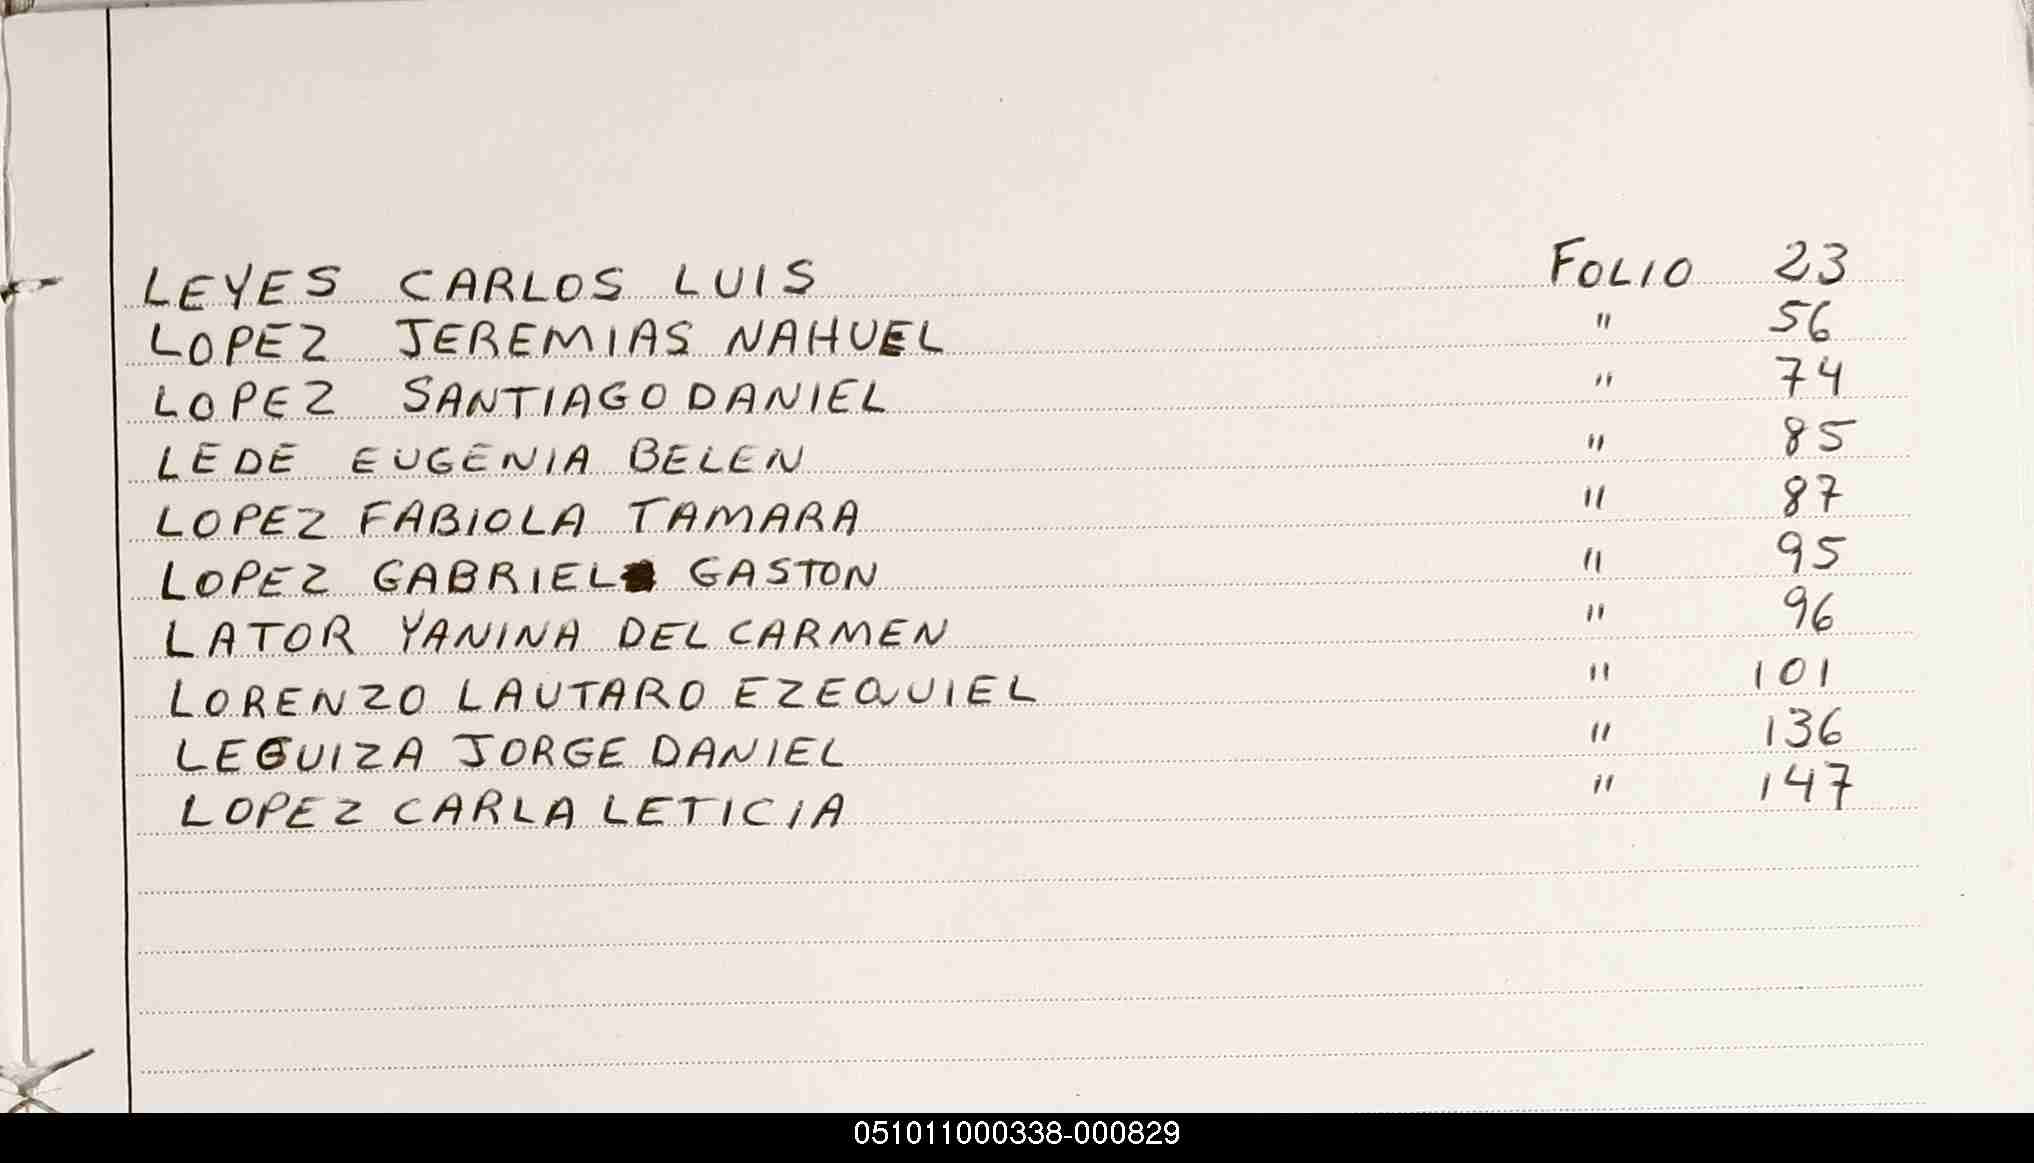 LEYES CARLOS LUIS FOLIO 23
LOPEZ JEREMIAS NAHUEL " 56
LOPEZ SANTIAGO DANIEL " 74
LEDE EUGENIA BELEN " 85
LOPEZ FABIOLA TAMARA " 87
LOPEZ GABRIEL GASTON " 95
LATOR YANINA DEL CARMEN " 96
LORENZO LAUTARO EZEQUIEL " 101
LEGUIZA JORGE DANIEL " 136
LOPEZ CARLA LETICIA " 147
051011000338-000829